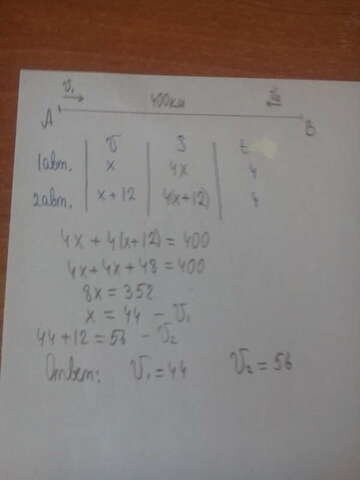 V₁ 400 км V₂
A B
V S t
1авт. x 4x 4
2авт. x+12 4(x+12) 4
4x + 4(x+12) = 400
4x+4x+48=400
8x = 352
x = 44 - V₁
44+12=56 - V₂
Ответ: V₁=44 V₂=56